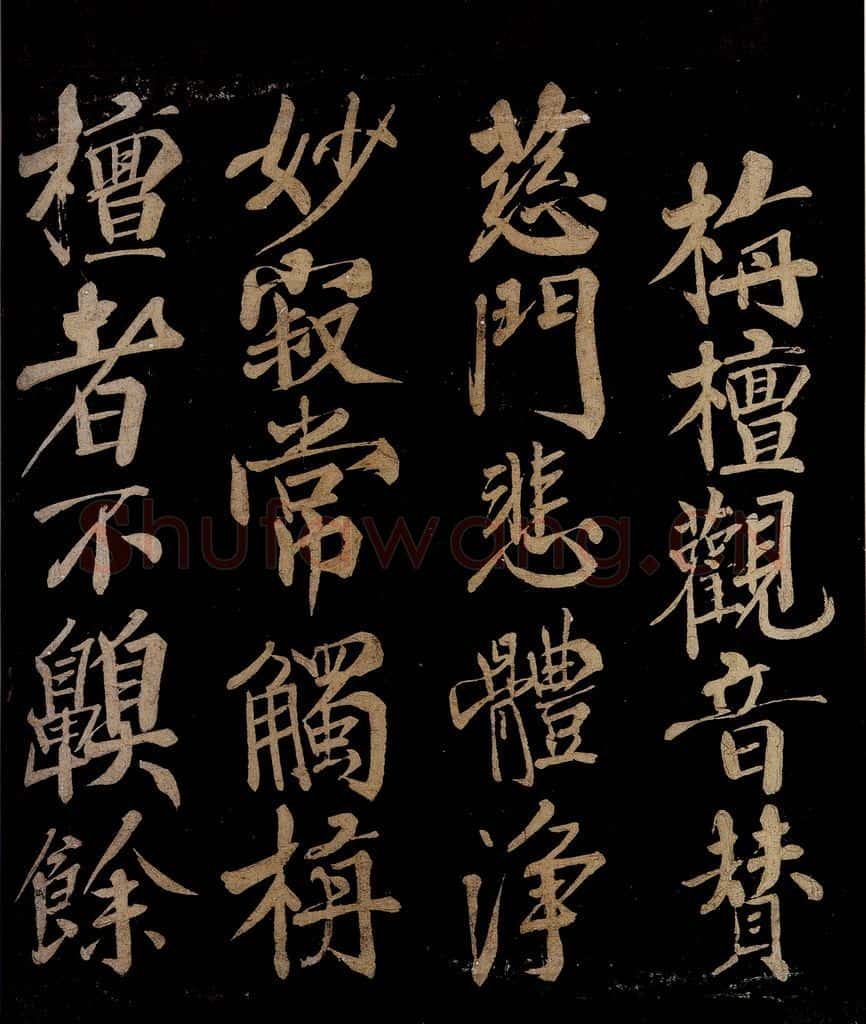 栴檀觀音賛
慈門悲體淨
妙寂常觸栴
檀者不齅餘
Shufawang.cn